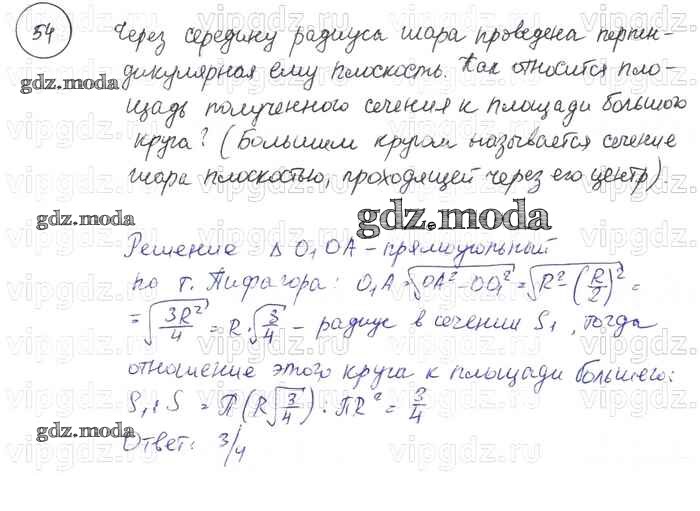 54
Через середину радиуса шара проведена перпен-
дикулярная ему плоскость. Как относится пло-
щадь полученного сечения к площади большого
круга? (Большим кругом называется сечение
шара плоскостью, проходящей через его центр).
Решение Δ O₁OA – прямоугольный
по т. Пифагора: O₁A = √(OA² – OO₁²) = √(R² – (R/2)²) =
= √(3R²/4) = R·√(3/4) – радиус в сечении S₁, тогда
отношение этого круга к площади большего:
S₁ : S = π(R√(3/4)) : πR² = 3/4
Ответ: 3/4
gdz.moda
gdz.moda
gdz.moda
gdz.moda
vipgdz.com